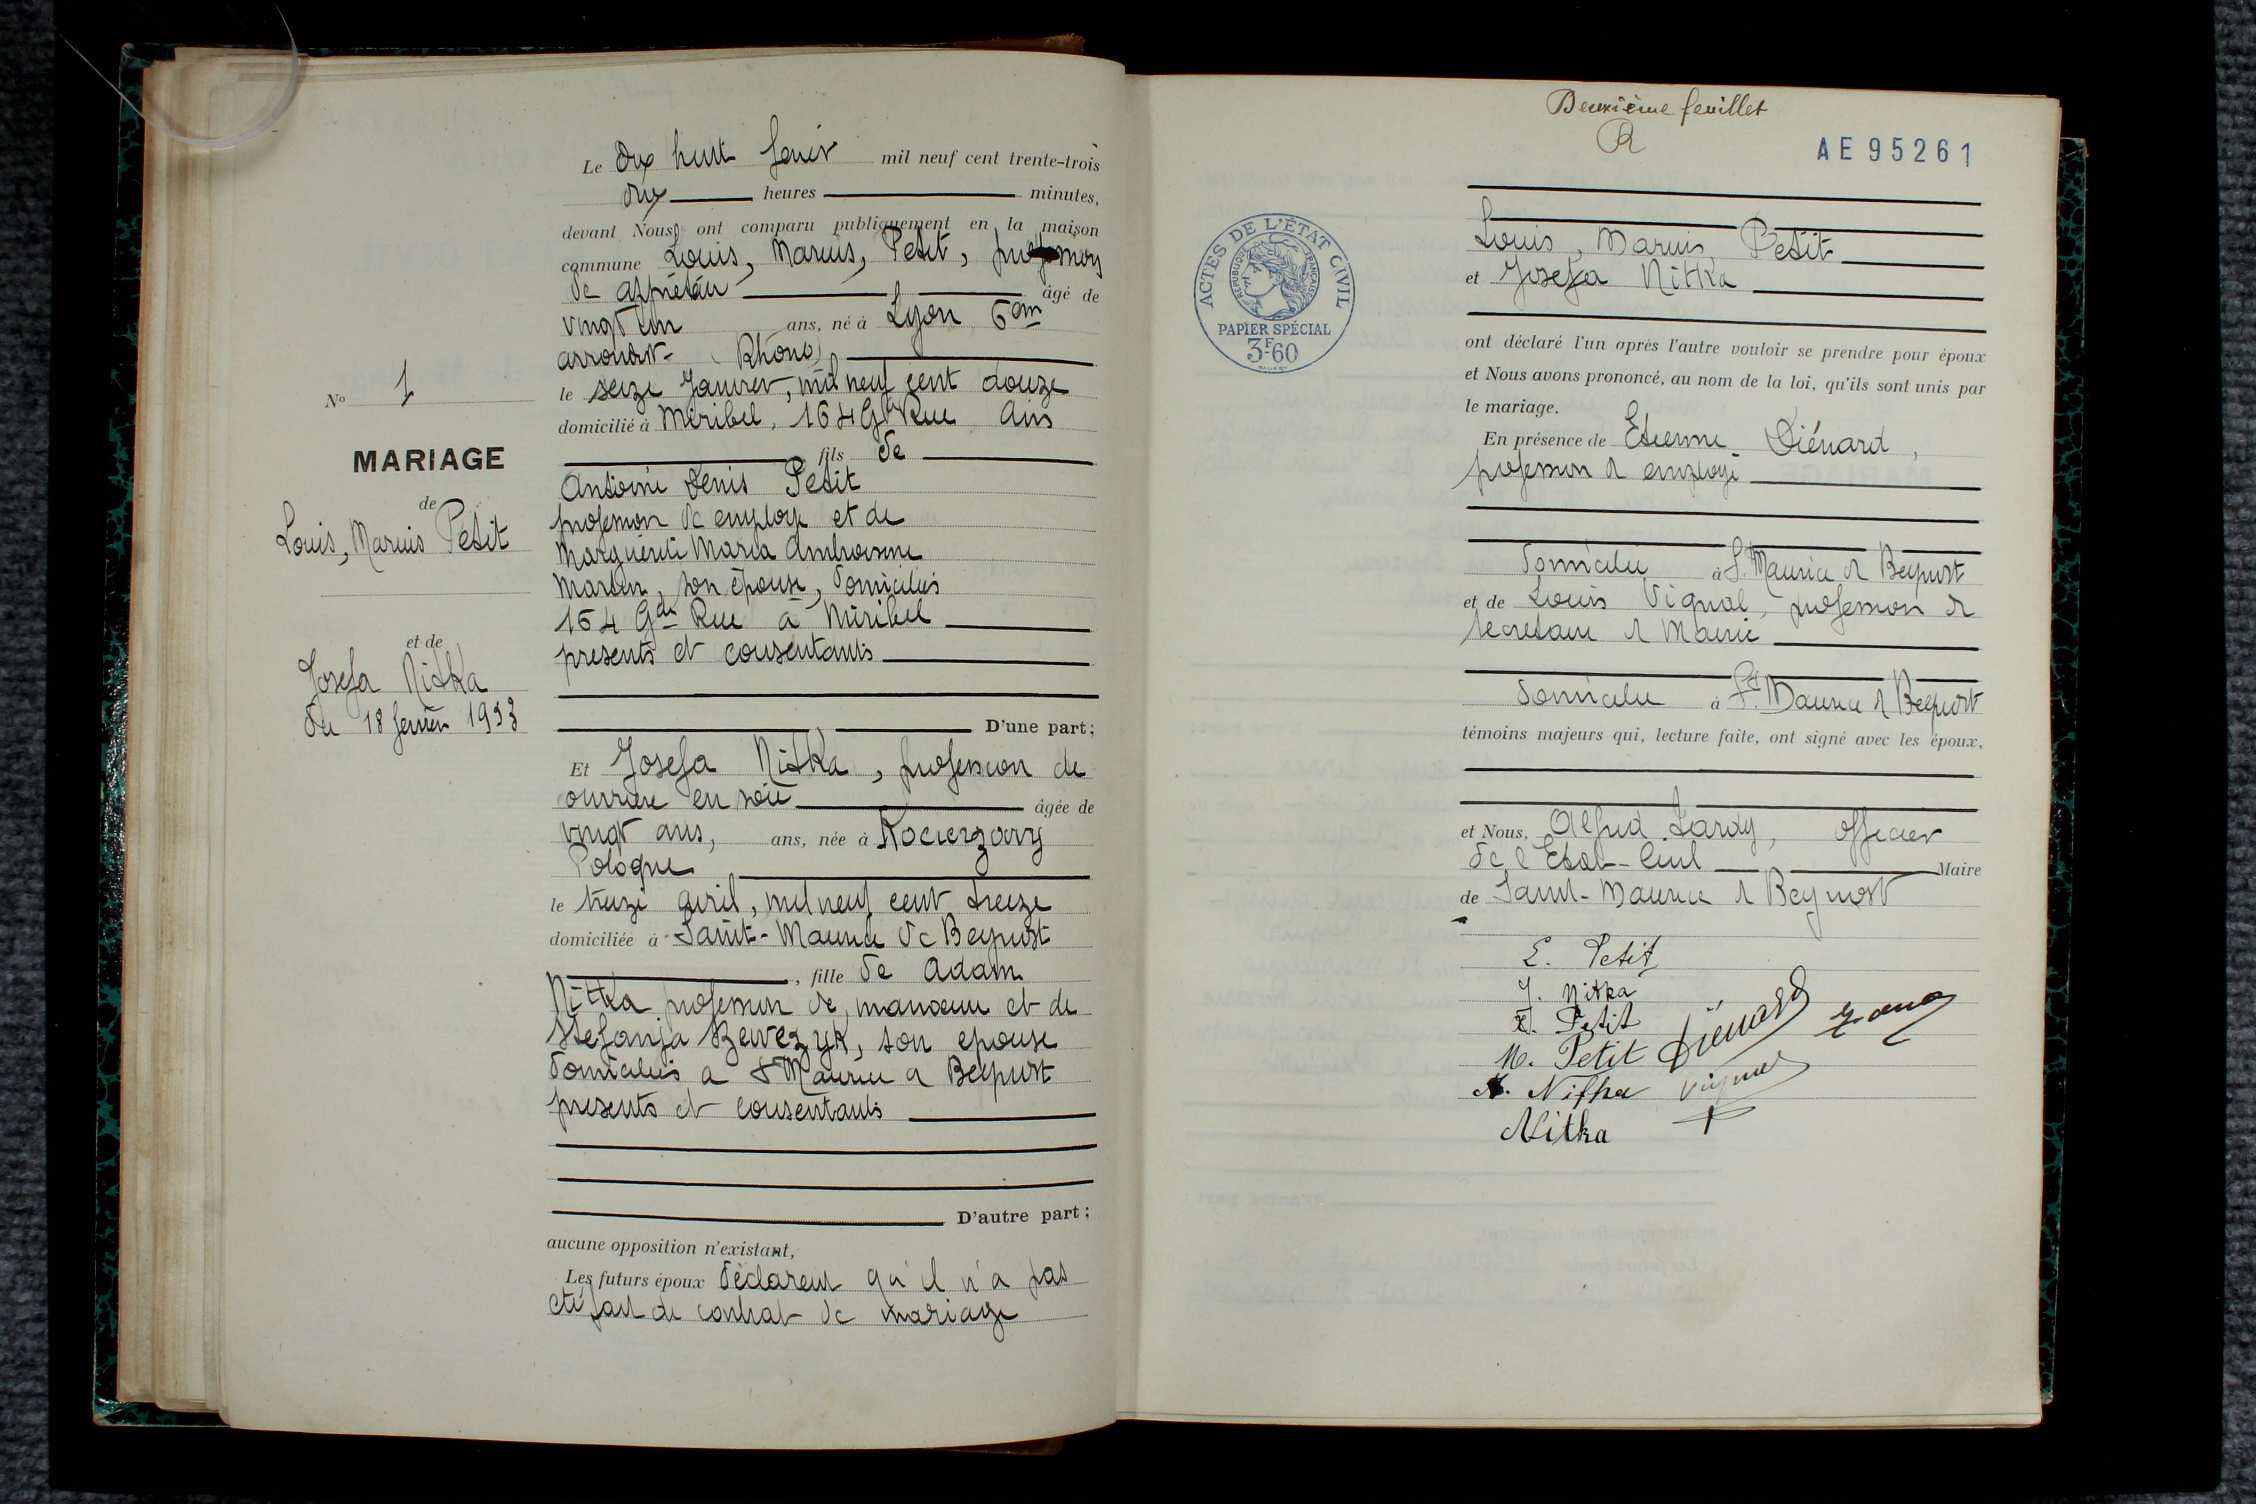 Le dix huit février mil neuf cent trente-trois
dix heures minutes,
devant Nous, ont comparu publiquement en la maison
commune Louis, Marius, Petit, profession
de apprêteur âgé de
vingt un ans, né à Lyon 6em
arrondt- (Rhône)
le seize Janvier, mil neuf cent douze
domicilié à Miribel, 164 Gde Rue Ain
fils de
Antoine Denis Petit
profession de employé et de
Marguerite Maria Ambroisine
Martin, son épouse, domiciliés
164 Gde Rue à Miribel
présents et consentants
D'une part;
No 1
MARIAGE
de
Louis, Marius Petit
et de
Josefa Nitka
du 18 février 1933
Et Josefa Nitka, profession de
ouvrière en soie âgée de
vingt ans, ans, née à
Pologne
le treize avril, mil neuf cent treize
domiciliée à Saint-Maurice de Beynost
, fille de Adam
Nittka profession de manœuvre et de
Stefanja, son épouse
domiciliés a St Maurice d Beynost
présents et consentants
D'autre part;
aucune opposition n'existant,
Les futurs époux déclarent qu'il n'a pas
été fait de contrat de mariage
Deuxième feuillet
AE95261
ACTES DE L'ÉTAT CIVIL
RÉPUBLIQUE FRANÇAISE
PAPIER SPÉCIAL
3F-60
Louis, Marius, Petit
et Josefa Nitka
ont déclaré l'un après l'autre vouloir se prendre pour époux
et Nous avons prononcé, au nom de la loi, qu'ils sont unis par
le mariage.
En présence de Etienne Diénard,
profession d employé
domicilié à St Maurice d Beynost
et de Louis Vignal, profession d
secrétaire d Mairie
domicilié à St Maurice d Beynost
témoins majeurs qui, lecture faite, ont signé avec les époux,
et Nous, Alfred Lardy, officier
de l'Etat-Civil Maire
de Saint-Maurice d Beynost
L. Petit
J. Nitka
Petit
M. Petit Diénard
Nitka Vignal
Nitka